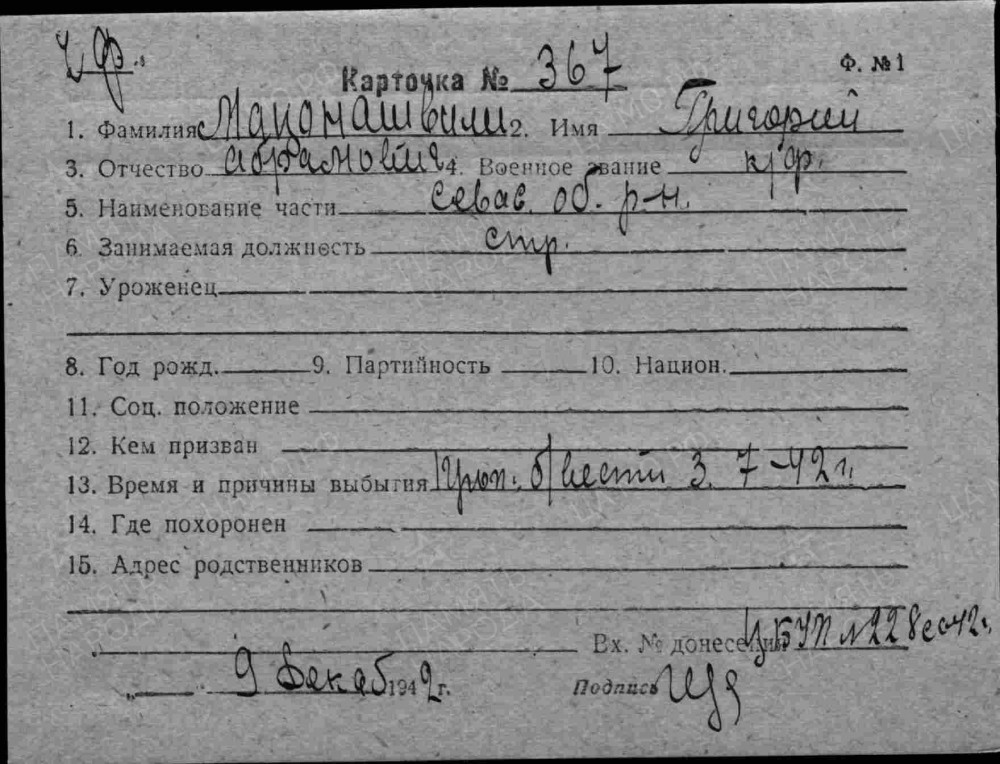 Ч.Ф.
Карточка № 367 Ф. №1
1. Фамилия Мацонашвили 2. Имя Григорий
3. Отчество Абрамович 4. Военное звание к/ф.
5. Наименование части севас. об. р-н.
6. Занимаемая должность стр.
7. Уроженец
8. Год рожд. 9. Партийность 10. Национ.
11. Соц. положение
12. Кем призван
13. Время и причины выбытия Проп. б/вести 3. 7-42 г.
14. Где похоронен
15. Адрес родственников
Вх. № донесения ЦБУП №228сс42г.
9 декаб 1942 г. Подпись